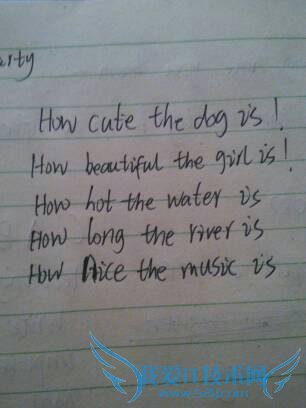 How cute the dog is!
How beautiful the girl is!
How hot the water is
How long the river is
How nice the music is